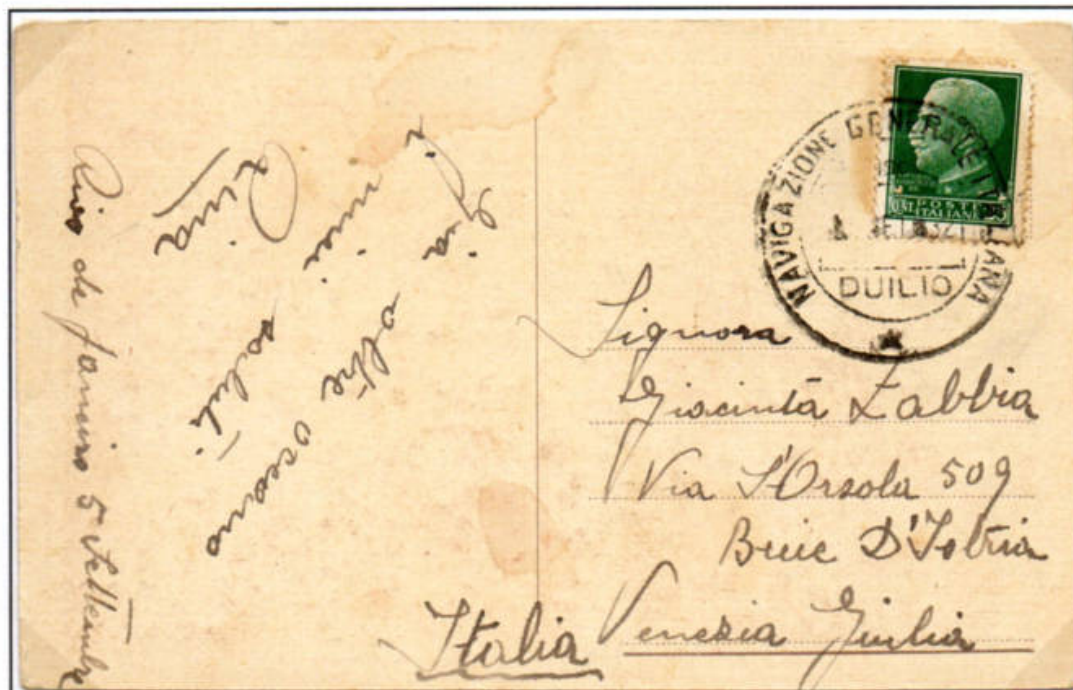 Rio de Janeiro 5 Settembre
Già oltre oceano
i miei saluti
Rina
NAVIGAZIONE GENERALE ITALIANA
DUILIO
POSTE
ITALIANE
Signora
Giacinta Zabbia
Via S'Orsola 509
Buie D'Istria
Venezia Giulia
Italia